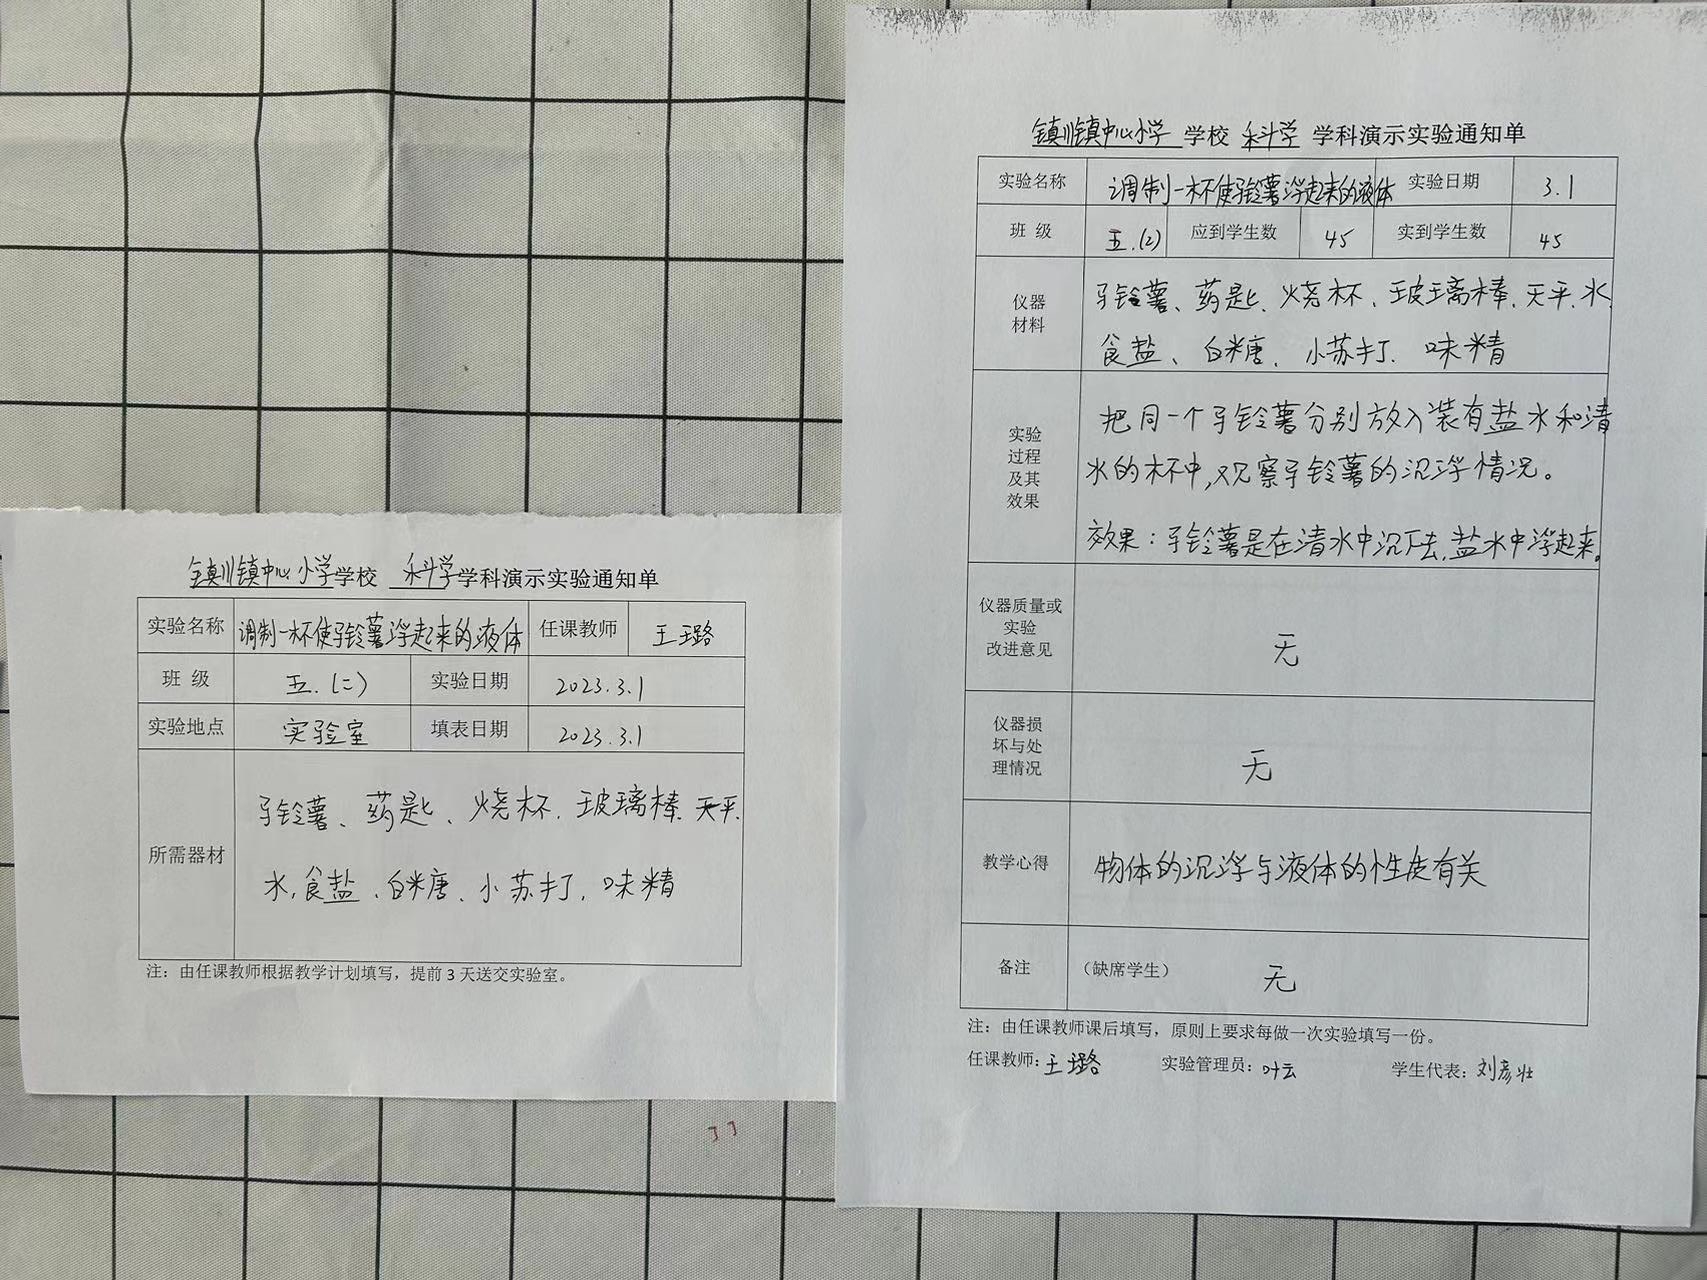 镇川镇中心小学学校 科学学科演示实验通知单
实验名称 调制一杯使马铃薯浮起来的液体 任课教师 王璐
班 级 五.(二) 实验日期 2023.3.1
实验地点 实验室 填表日期 2023.3.1
所需器材
马铃薯、药匙、烧杯、玻璃棒、天平、
水,食盐、白米唐、小苏打、味精
注：由任课教师根据教学计划填写，提前3天送交实验室。
镇川镇中心小学 学校 科学 学科演示实验通知单
实验名称 调制一杯使马铃薯浮起来的液体 实验日期 3.1
班 级 五.(2) 应到学生数 45 实到学生数 45
仪器
材料
马铃薯、药匙、烧杯、玻璃棒、天平、水、
食盐、白米唐、小苏打、味精
实验
过程
及其
效果
把同一个马铃薯分别放入装有盐水和清
水的杯中,观察马铃薯的沉浮情况。
效果：马铃薯是在清水中沉下去,盐水中浮起来。
仪器质量或
实验
改进意见
无
仪器损
坏与处
理情况
无
教学心得 物体的沉浮与液体的性质有关
备注 （缺席学生） 无
注：由任课教师课后填写，原则上要求每做一次实验填写一份。
任课教师：王璐 实验管理员：叶云 学生代表：刘彦壮